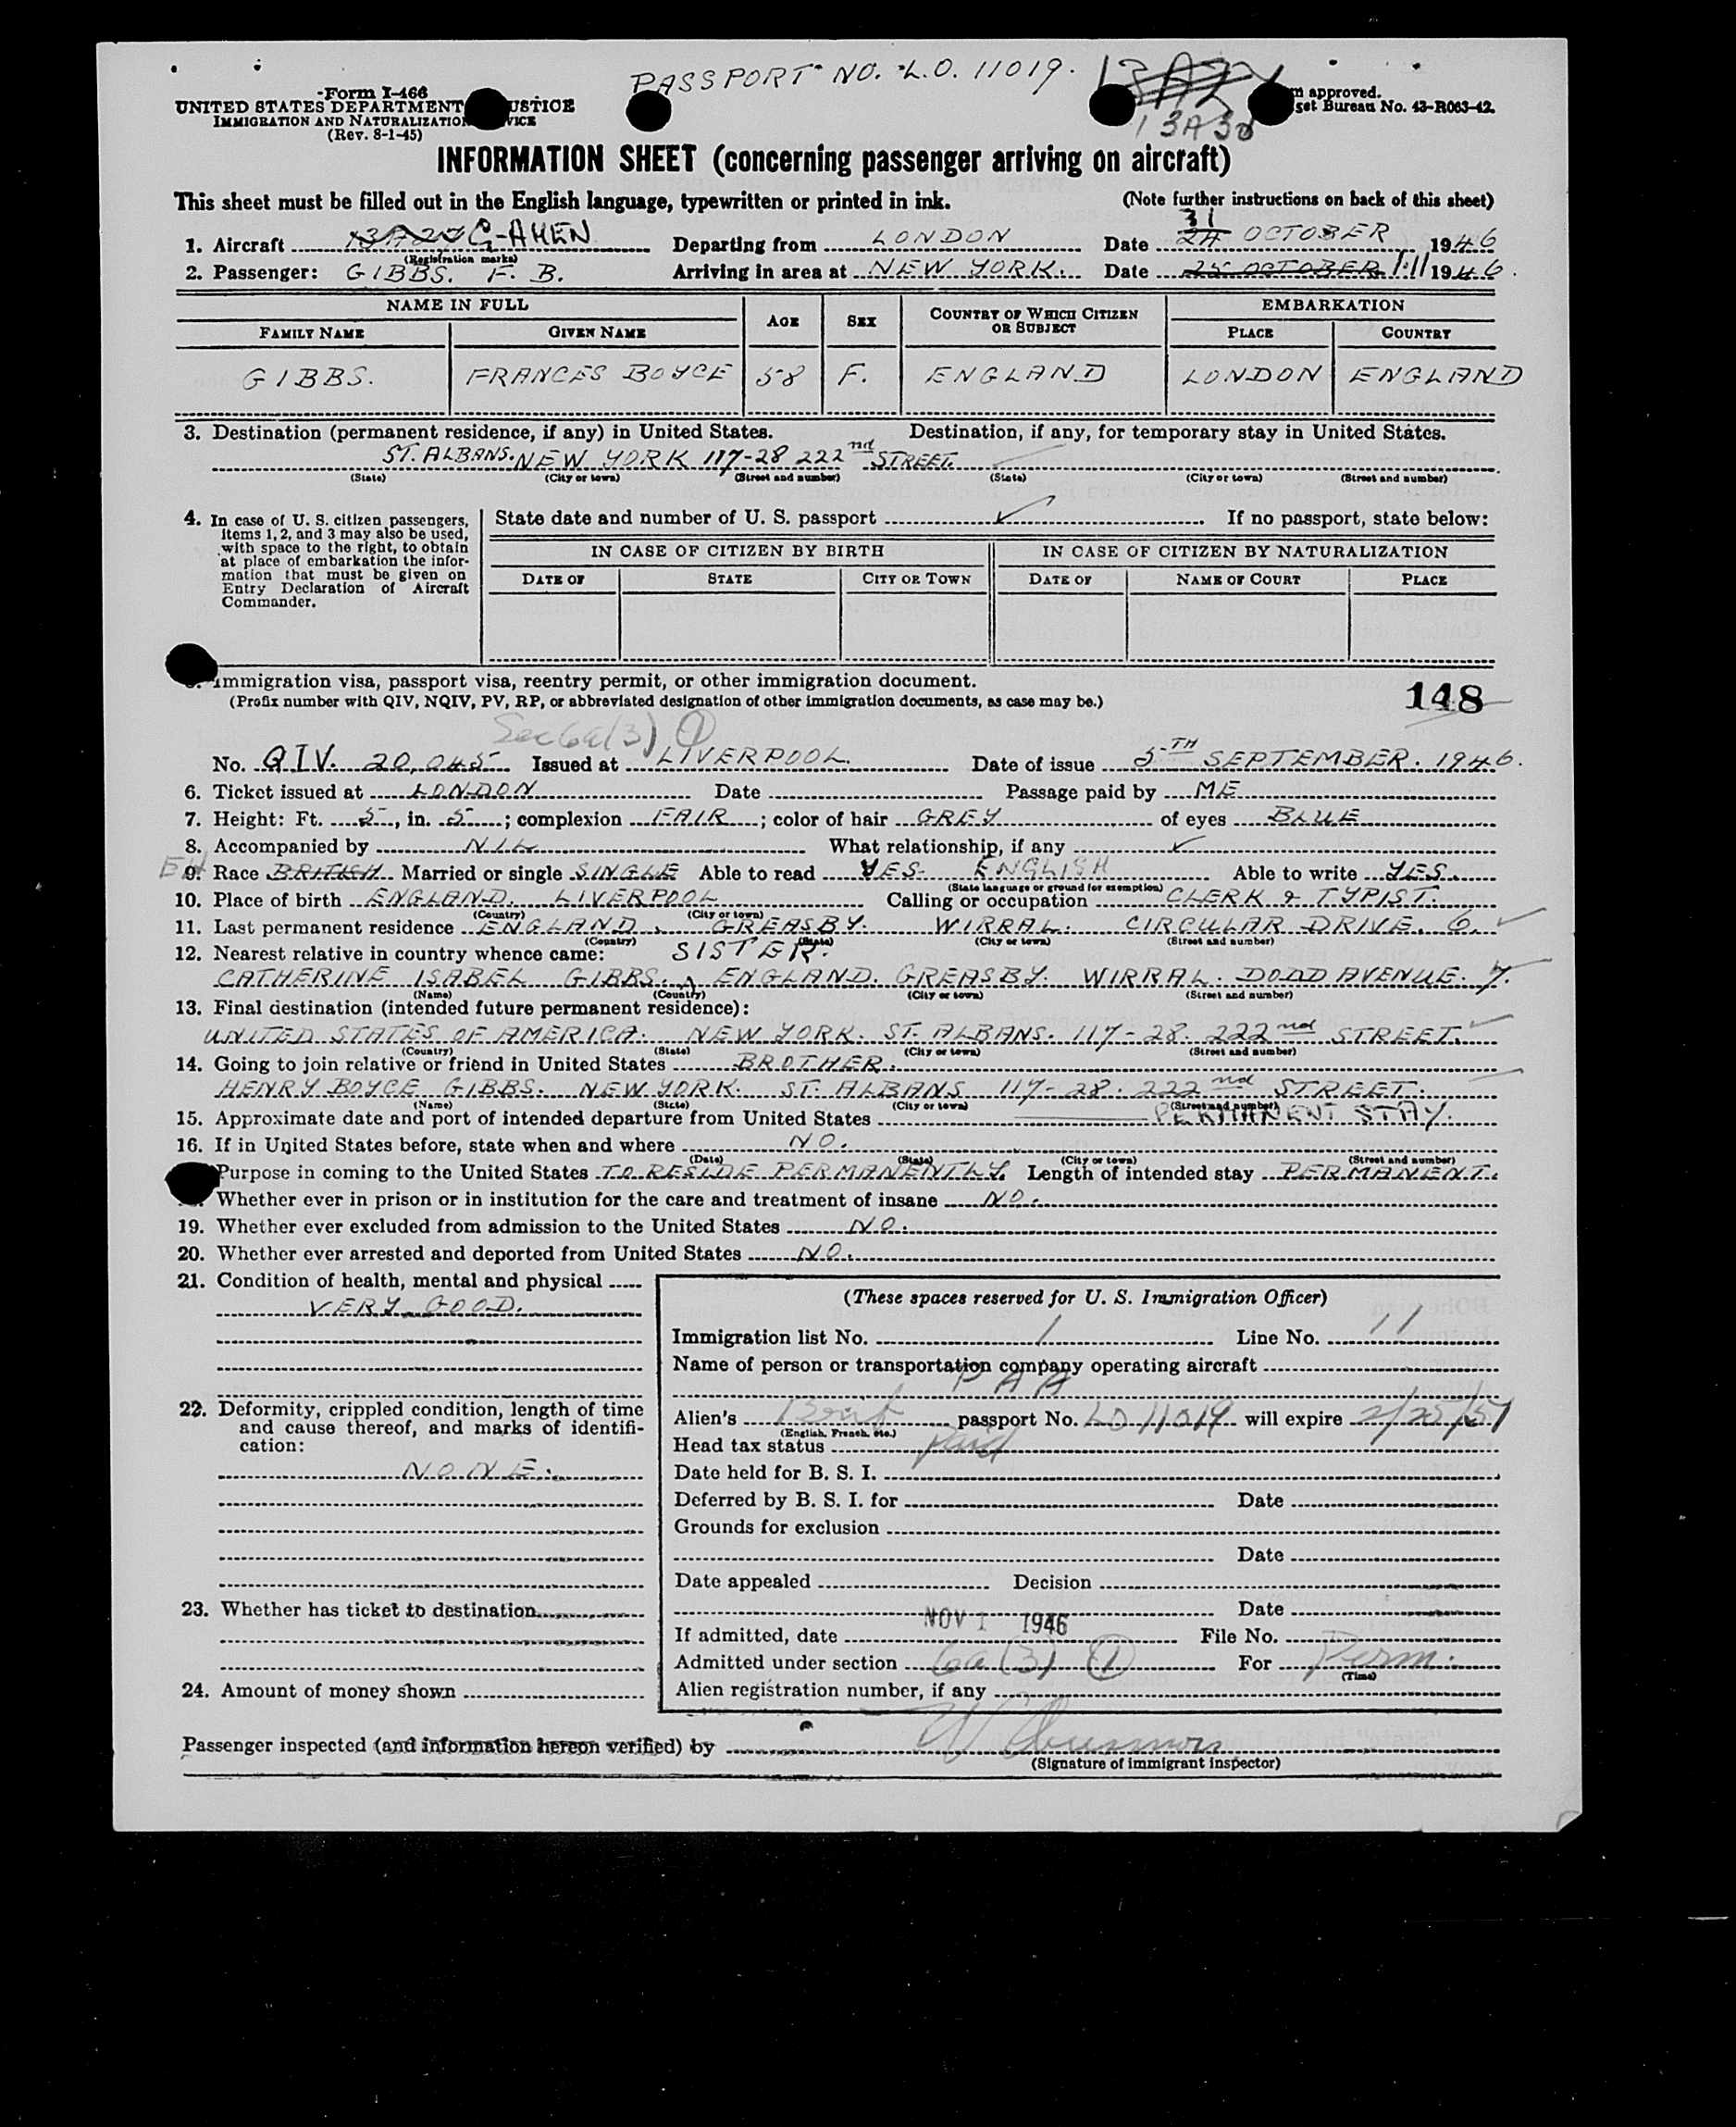 PASSPORT NO. L.O. 11019.
Form I-466
UNITED STATES DEPARTMENT USTICE
IMMIGRATION AND NATURALIZATION VICE
(Rev. 8-1-45)
m approved.
get Bureau No. 43-R063-42.
13A3
INFORMATION SHEET (concerning passenger arriving on aircraft)
This sheet must be filled out in the English language, typewritten or printed in ink. (Note further instructions on back of this sheet)
1. Aircraft G-AHEN Departing from LONDON Date 31 24 OCTOBER 1946
(Registration marks)
2. Passenger: GIBBS. F. B. Arriving in area at NEW YORK. Date 25 OCTOBER 1.11 1946.
NAME IN FULL AGE SEX COUNTRY OF WHICH CITIZEN OR SUBJECT EMBARKATION
FAMILY NAME GIVEN NAME PLACE COUNTRY
GIBBS. FRANCES BOYCE 58 F. ENGLAND LONDON ENGLAND
3. Destination (permanent residence, if any) in United States. Destination, if any, for temporary stay in United States.
ST. ALBANS. NEW YORK 117-28 222nd STREET.
(State) (City or town) (Street and number) (State) (City or town) (Street and number)
4. In case of U. S. citizen passengers, items 1, 2, and 3 may also be used, with space to the right, to obtain at place of embarkation the information that must be given on Entry Declaration of Aircraft Commander.
State date and number of U. S. passport If no passport, state below:
IN CASE OF CITIZEN BY BIRTH IN CASE OF CITIZEN BY NATURALIZATION
DATE OF STATE CITY OR TOWN DATE OF NAME OF COURT PLACE
Immigration visa, passport visa, reentry permit, or other immigration document.
(Prefix number with QIV, NQIV, PV, RP, or abbreviated designation of other immigration documents, as case may be.)
148
Sec 6a(3) 1
No. QIV. 20,045 Issued at LIVERPOOL. Date of issue 5TH SEPTEMBER. 1946.
6. Ticket issued at LONDON Date Passage paid by ME
7. Height: Ft. 5, in. 5; complexion FAIR; color of hair GREY of eyes BLUE
8. Accompanied by NIL What relationship, if any
9. Race BRITISH Married or single SINGLE Able to read YES- ENGLISH Able to write YES.
(State language or ground for exemption)
10. Place of birth ENGLAND. LIVERPOOL Calling or occupation CLERK & TYPIST.
(Country) (City or town)
11. Last permanent residence ENGLAND. GREASBY. WIRRAL. CIRCULAR DRIVE. 6.
(Country) (State) (City or town) (Street and number)
12. Nearest relative in country whence came: SISTER.
CATHERINE ISABEL GIBBS. ENGLAND. GREASBY. WIRRAL. DODD AVENUE. 7.
(Name) (Country) (City or town) (Street and number)
13. Final destination (intended future permanent residence):
UNITED STATES OF AMERICA. NEW YORK. ST. ALBANS. 117-28. 222nd STREET.
(Country) (State) (City or town) (Street and number)
14. Going to join relative or friend in United States BROTHER.
HENRY BOYCE GIBBS. NEW YORK. ST. ALBANS 117-28. 222nd STREET.
(Name) (State) (City or town) (Street and number)
15. Approximate date and port of intended departure from United States PERMANENT STAY.
16. If in United States before, state when and where NO.
(Date) (State) (City or town) (Street and number)
Purpose in coming to the United States TO RESIDE PERMANENTLY. Length of intended stay PERMANENT.
Whether ever in prison or in institution for the care and treatment of insane NO.
19. Whether ever excluded from admission to the United States NO.
20. Whether ever arrested and deported from United States NO.
21. Condition of health, mental and physical
VERY GOOD.
22. Deformity, crippled condition, length of time and cause thereof, and marks of identification:
NONE.
23. Whether has ticket to destination
24. Amount of money shown
(These spaces reserved for U. S. Immigration Officer)
Immigration list No. 1 Line No. 11
Name of person or transportation company operating aircraft
PAA
Alien's Brit passport No. LO 11019 will expire 2/25/51
(English, French, etc.)
Head tax status paid
Date held for B. S. I.
Deferred by B. S. I. for Date
Grounds for exclusion
Date
Date appealed Decision
Date
If admitted, date NOV 1 1946 File No.
Admitted under section 6a(3) 1 For Perm.
(Time)
Alien registration number, if any
Passenger inspected (and information hereon verified) by
(Signature of immigrant inspector)